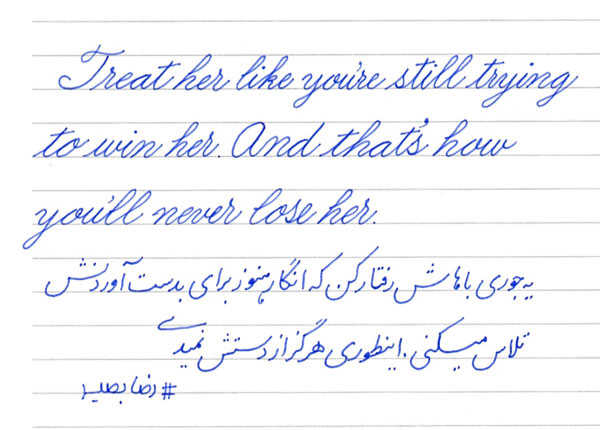 Treat her like you're still trying
to win her. And that's how
you'll never lose her.
یه جوری باهاش رفتار کن که انگار هنوز برای بدست آوردنش
تلاش میکنی. اینطوری هرگز از دستش نمیدی
# رضا